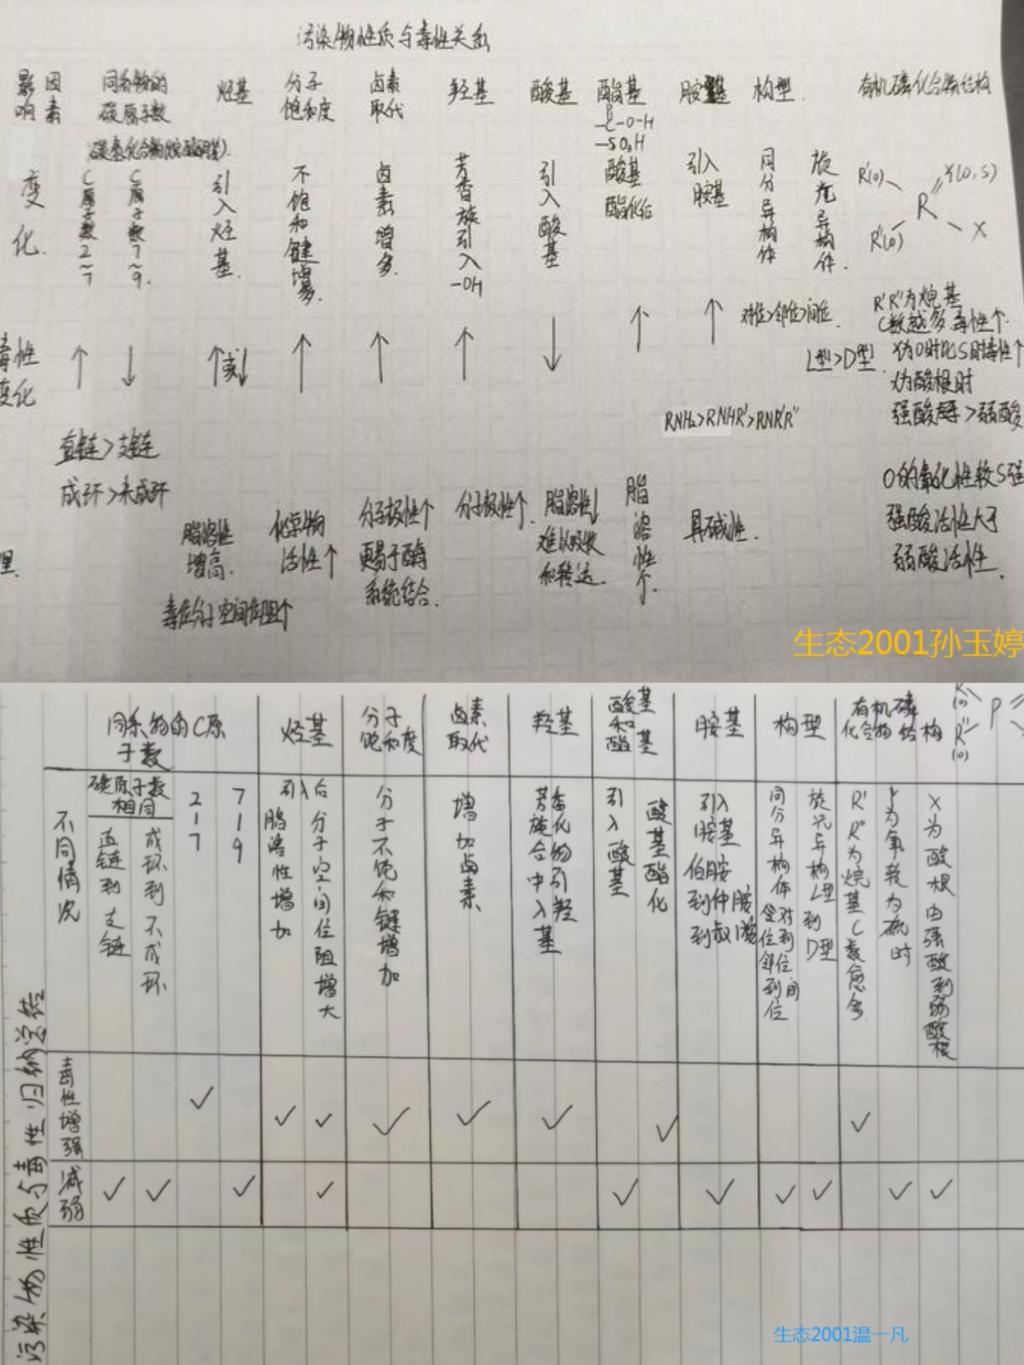 污染物性质与毒性关系
影响因素
同系物的碳原子数
烃基
分子饱和度
卤素取代
羟基
酸基
酯基
胺基
构型
有机磷化合物结构
-C-O-H
-SO₃H
变化
C原子数2~7
C原子数7~9.
引入烃基.
不饱和键增多.
卤素增多.
芳香族引入-OH
引入酸基
酸基酯化后
引入胺基
同分异构体
旋光异构体.
R'(O)
R''(O)
R
Y(O,S)
X
毒性变化
↑
↓
↑或↓
↑
↑
↑
↓
↑
↑
对位>邻位>间位.
L型>D型
R'R''为烷基
C数越多毒性↑
Y为O时比S时毒性↑
X为酸根时
强酸毒>弱酸
RNH₂>RNHR'>RNR'R''
直链>支链
成环>未成环
理
脂溶性增高.
毒位分子空间位阻↑
化合物活性↑
分子极性↑
更易于酶系统结合.
分子极性↑.
脂溶性↓
难以吸收和转运.
脂溶性↑.
具碱性.
O的氧化性较S强
强酸活性大于弱酸活性.
生态2001孙玉婷
污染物性质与毒性归纳总结
同系物的C原子数
烃基
分子饱和度
卤素取代
羟基
酸基和酯基
胺基
构型
有机磷化合物结构
R'(O)
R''(O)
P
不同情况
碳原子数相同
直链到支链
成环到不成环
2-7
7-9
引入后
脂溶性增加
分子空间位阻增大
分子不饱和键增加
增加卤素
芳香族化合物中引入羟基
引入酸基
酸基酯化
引入胺基
伯胺到仲胺到叔胺
同分异构体
对位到邻位到间位
旋光异构L型到D型
R'R''为烷基C数愈多
Y为氧较为硫时
X为酸根由强酸到弱酸根
毒性增强
✓ ✓ ✓ ✓ ✓ ✓ ✓ ✓
减弱
✓ ✓ ✓ ✓ ✓ ✓ ✓ ✓ ✓ ✓
生态2001温一凡